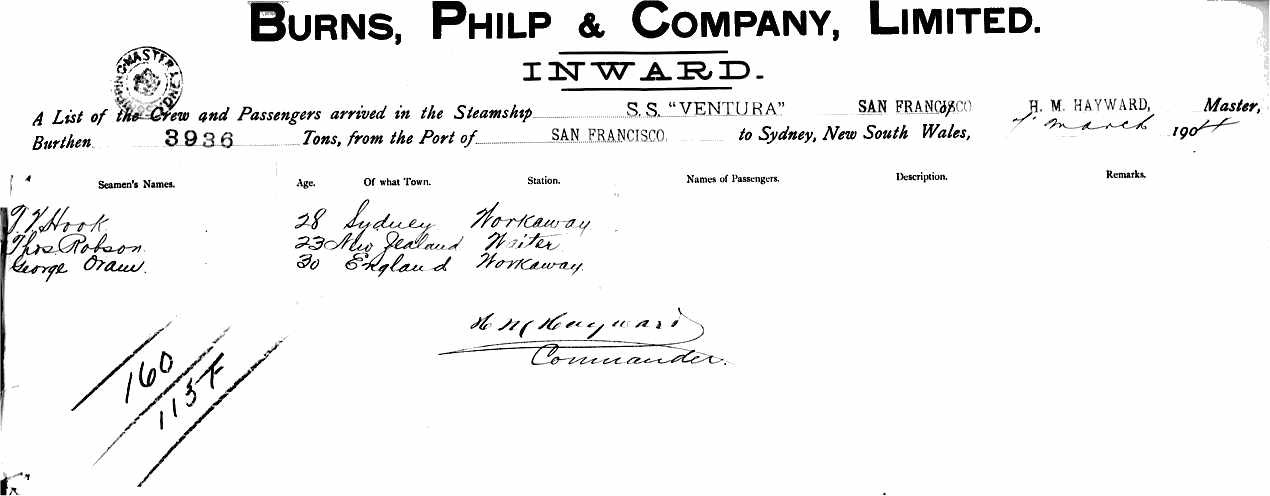 BURNS, PHILP & COMPANY, LIMITED.
INWARD.
SHIPPING MASTER SYDNEY
A List of the Crew and Passengers arrived in the Steamship S.S. "VENTURA" of SAN FRANCISCO H. M. HAYWARD, Master,
Burthen 3936 Tons, from the Port of SAN FRANCISCO. to Sydney, New South Wales, March 1904
Seamen's Names. Age. Of what Town. Station. Names of Passengers. Description. Remarks.
Hook 28 Sydney Workaway
Thos Robson 23 New Zealand Writer
George Oram. 30 England Workaway.
H M Hayward
Commander.
160